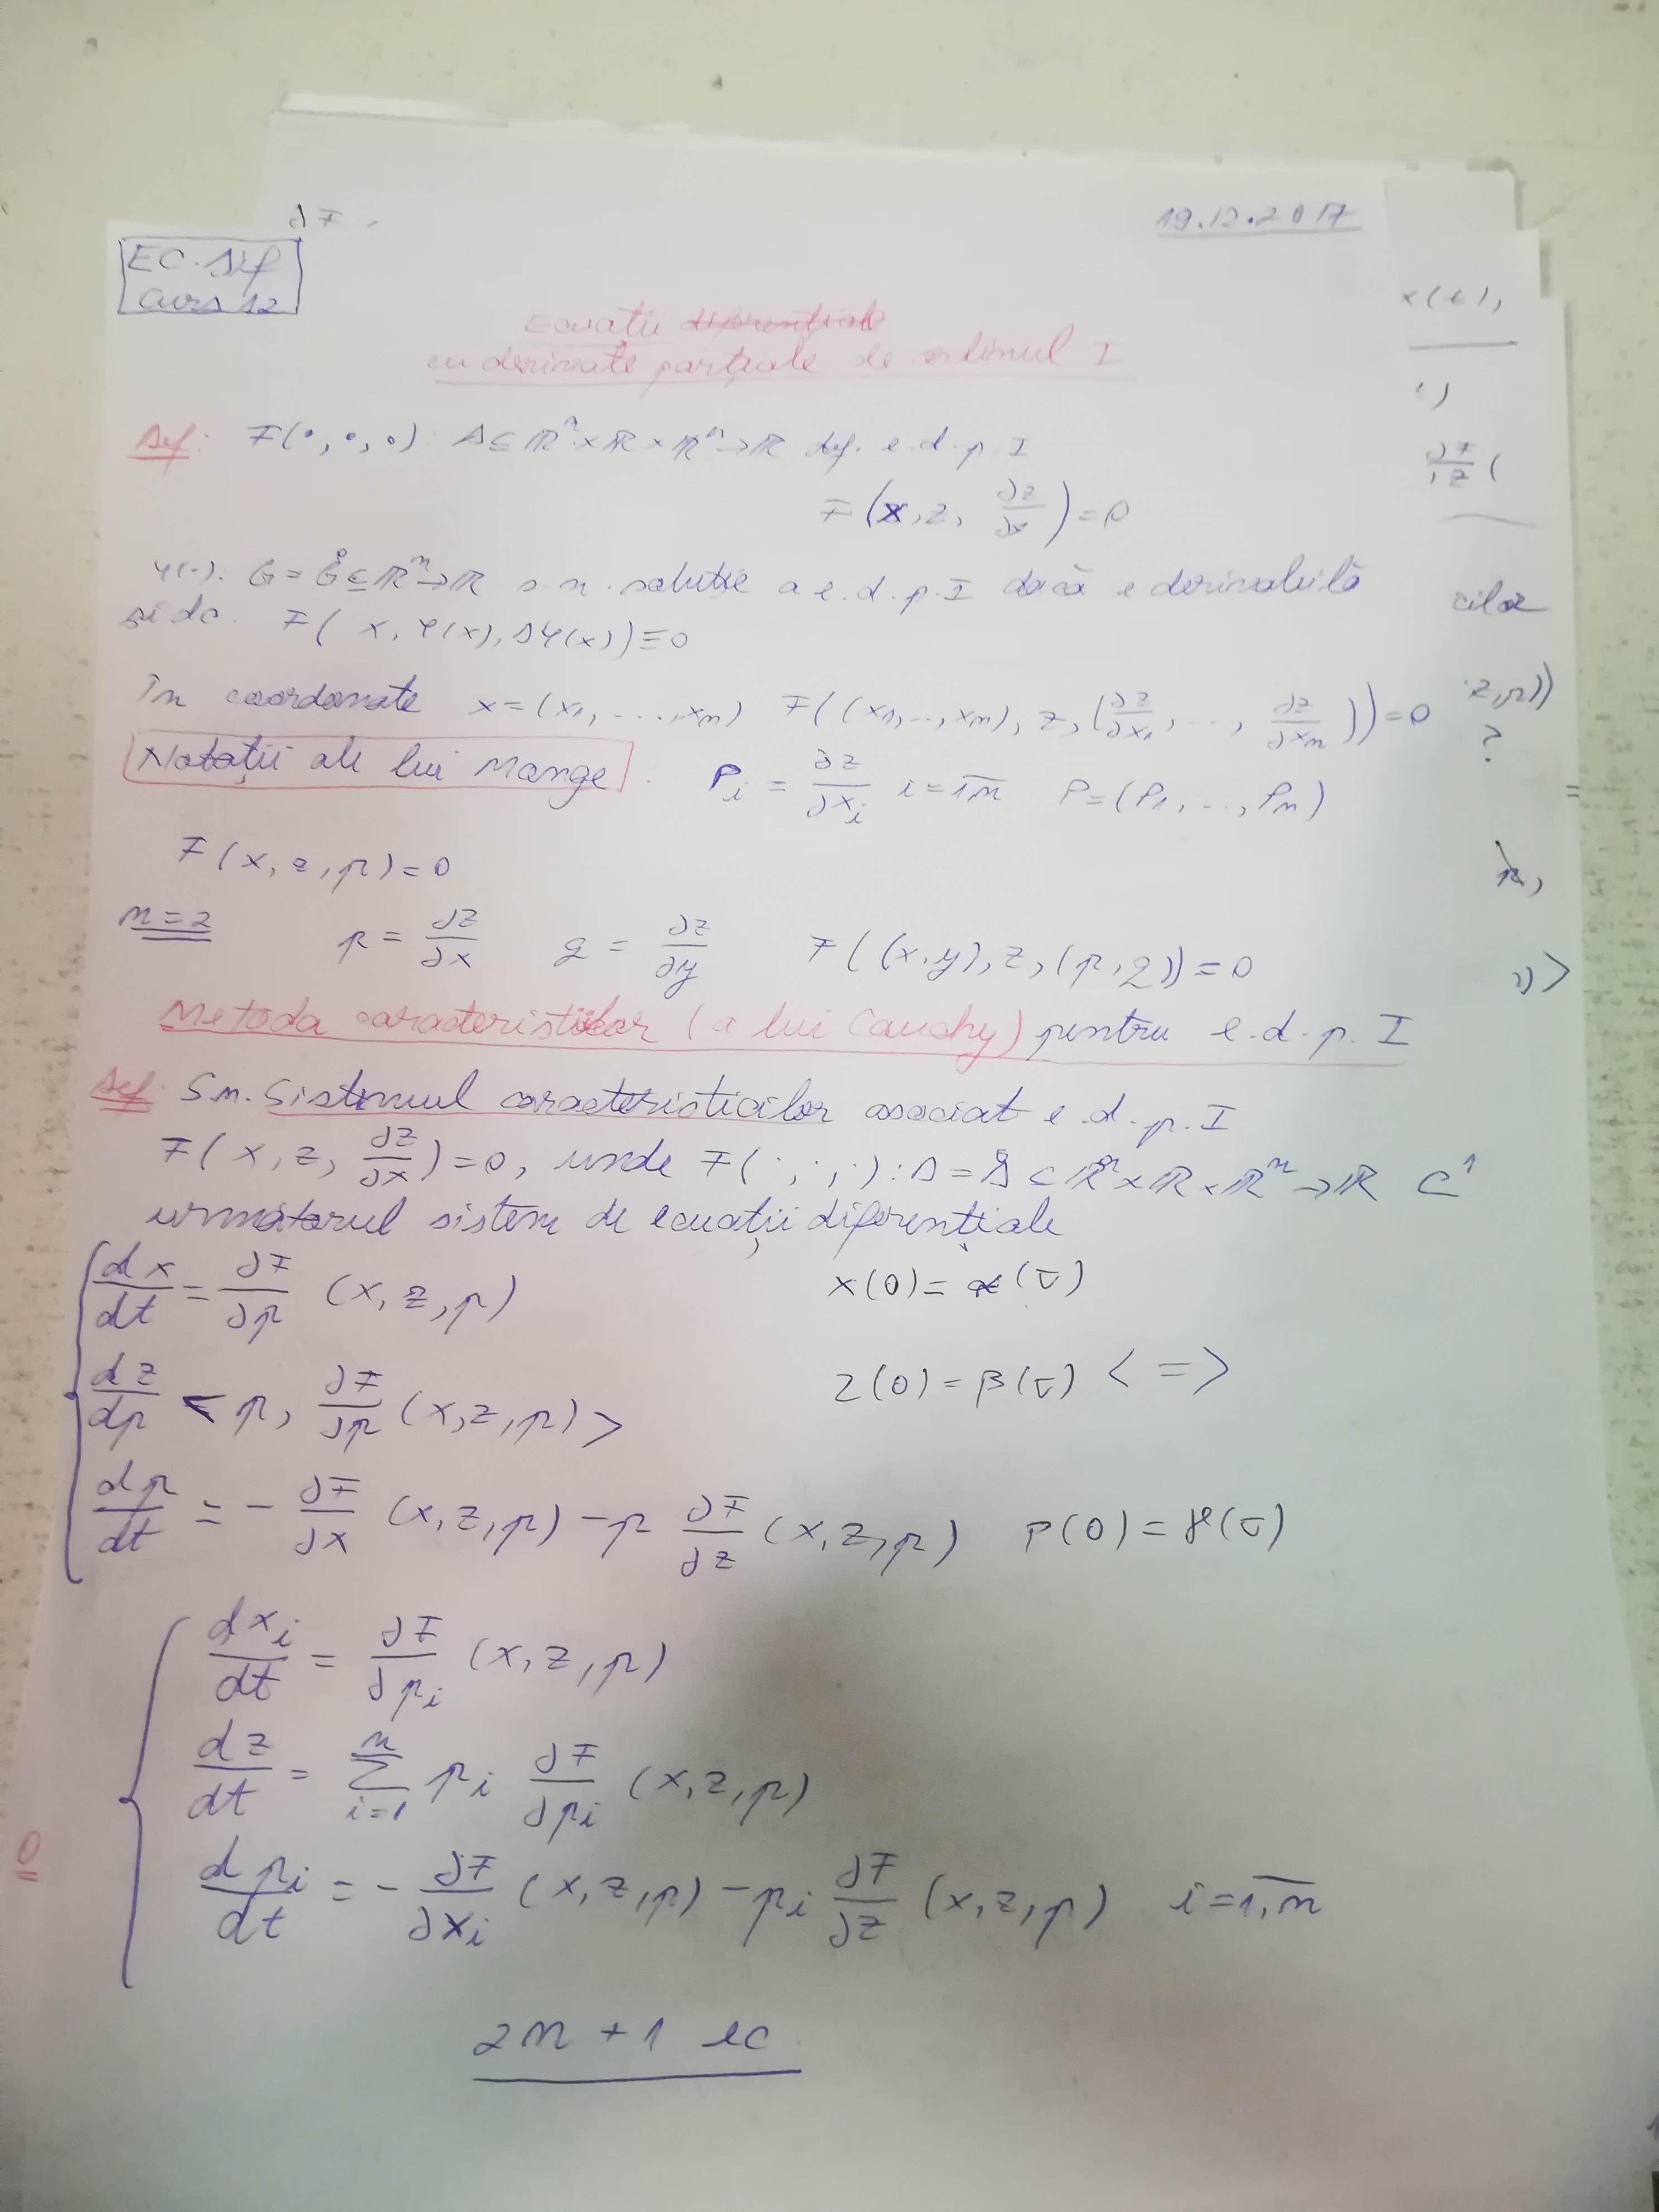 ∂F
19.12.2017
EC. Dif
Curs 12
Ecuații diferențiale
cu derivate parțiale de ordinul I
Def: F(·,·,·): D⊆ℝⁿ×ℝ×ℝⁿ→ℝ def. e.d.p. I
F(x, z, ∂z/∂x) = 0
φ(·): G = G̊ ⊆ ℝⁿ→ℝ s.n. soluție a e.d.p. I dacă e derivabilă
și dc. F(x, φ(x), Dφ(x)) ≡ 0
În coordonate x = (x₁, ..., xₙ) F((x₁, .., xₙ), z, (∂z/∂x₁, ..., ∂z/∂xₙ)) = 0
Notații ale lui Mange : Pᵢ = ∂z/∂xᵢ i = 1,n P = (P₁, ..., Pₙ)
F(x, z, p) = 0
n = 2 p = ∂z/∂x q = ∂z/∂y F((x,y), z, (p,q)) = 0
Metoda caracteristicilor (a lui Cauchy) pentru e.d.p. I
Def: S.n. Sistemul caracteristicilor asociat e.d.p. I
F(x, z, ∂z/∂x) = 0, unde F(·,·,·): D = D̊ ⊂ ℝⁿ×ℝ×ℝⁿ→ℝ C¹
următorul sistem de ecuații diferențiale
dx/dt = ∂F/∂p (x, z, p) x(0) = α(σ)
dz/dp < p, ∂F/∂p (x, z, p) > z(0) = β(σ) <=>
dp/dt = - ∂F/∂x (x, z, p) - p ∂F/∂z (x, z, p) P(0) = γ(σ)
dxᵢ/dt = ∂F/∂pᵢ (x, z, p)
dz/dt = ∑ⁿᵢ₌₁ pᵢ ∂F/∂pᵢ (x, z, p)
dpᵢ/dt = - ∂F/∂xᵢ (x, z, p) - pᵢ ∂F/∂z (x, z, p) i = 1,n
2n + 1 ec
x(t),
∂F/∂z (
cilor
z,p))
?
=
p,
>
0